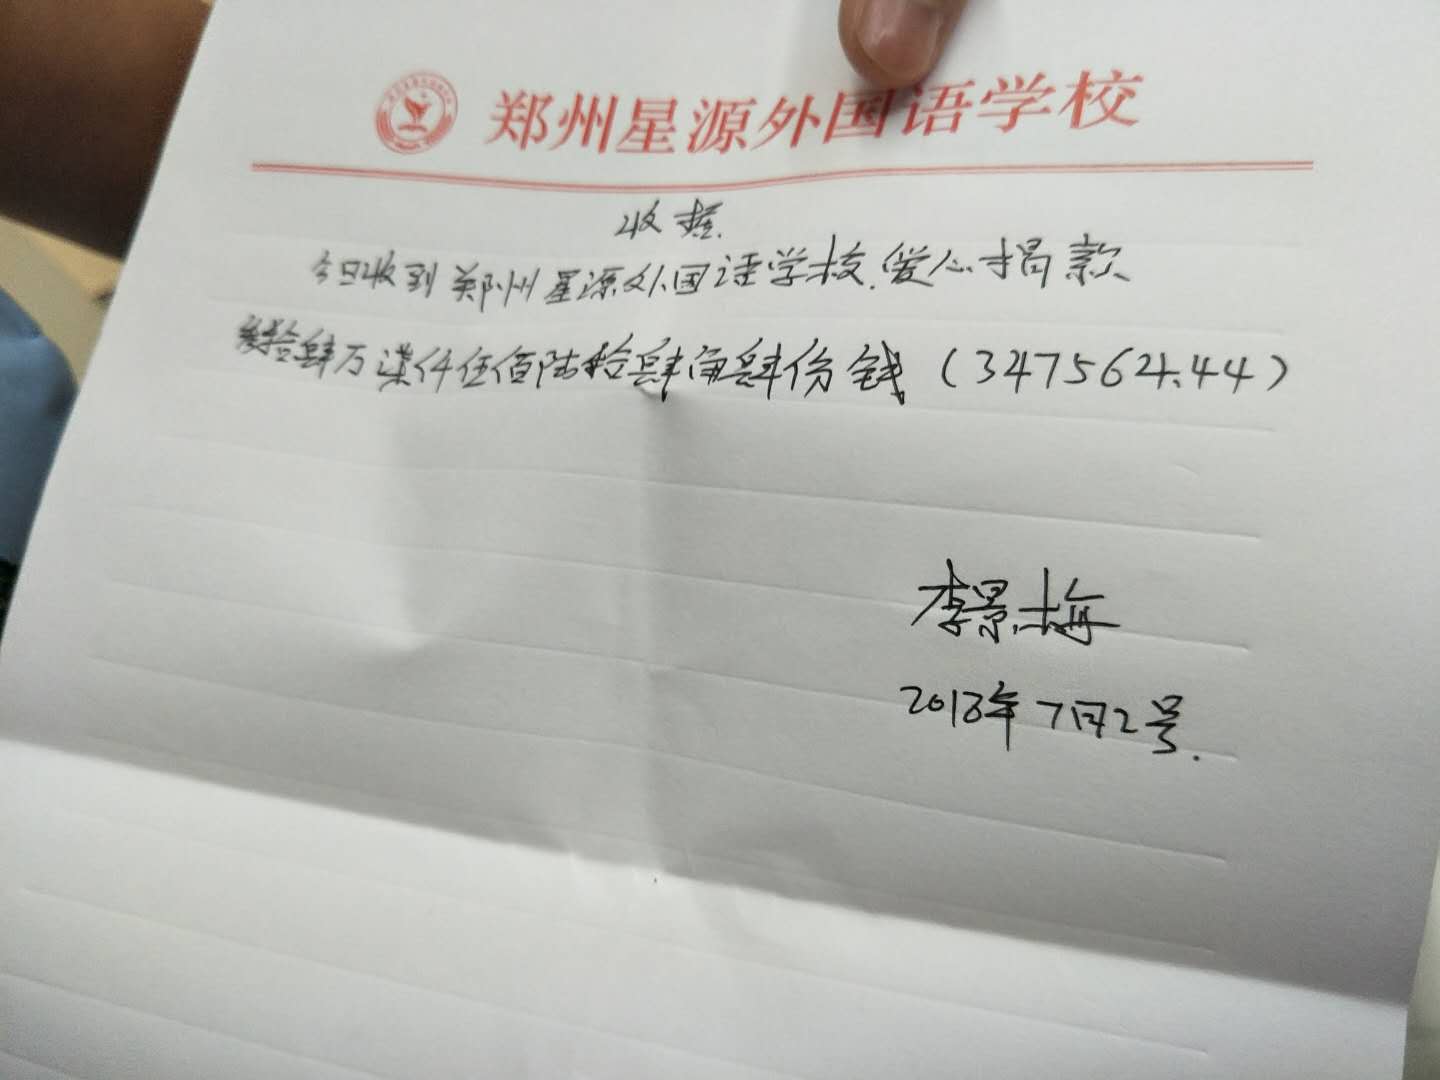 郑州星源外国语学校
收据.
今日收到郑州星源外国语学校.爱心捐款
叁拾肆万柒仟伍佰陆拾肆角肆份钱（347564.44）
李景梅
2018年7月2号.